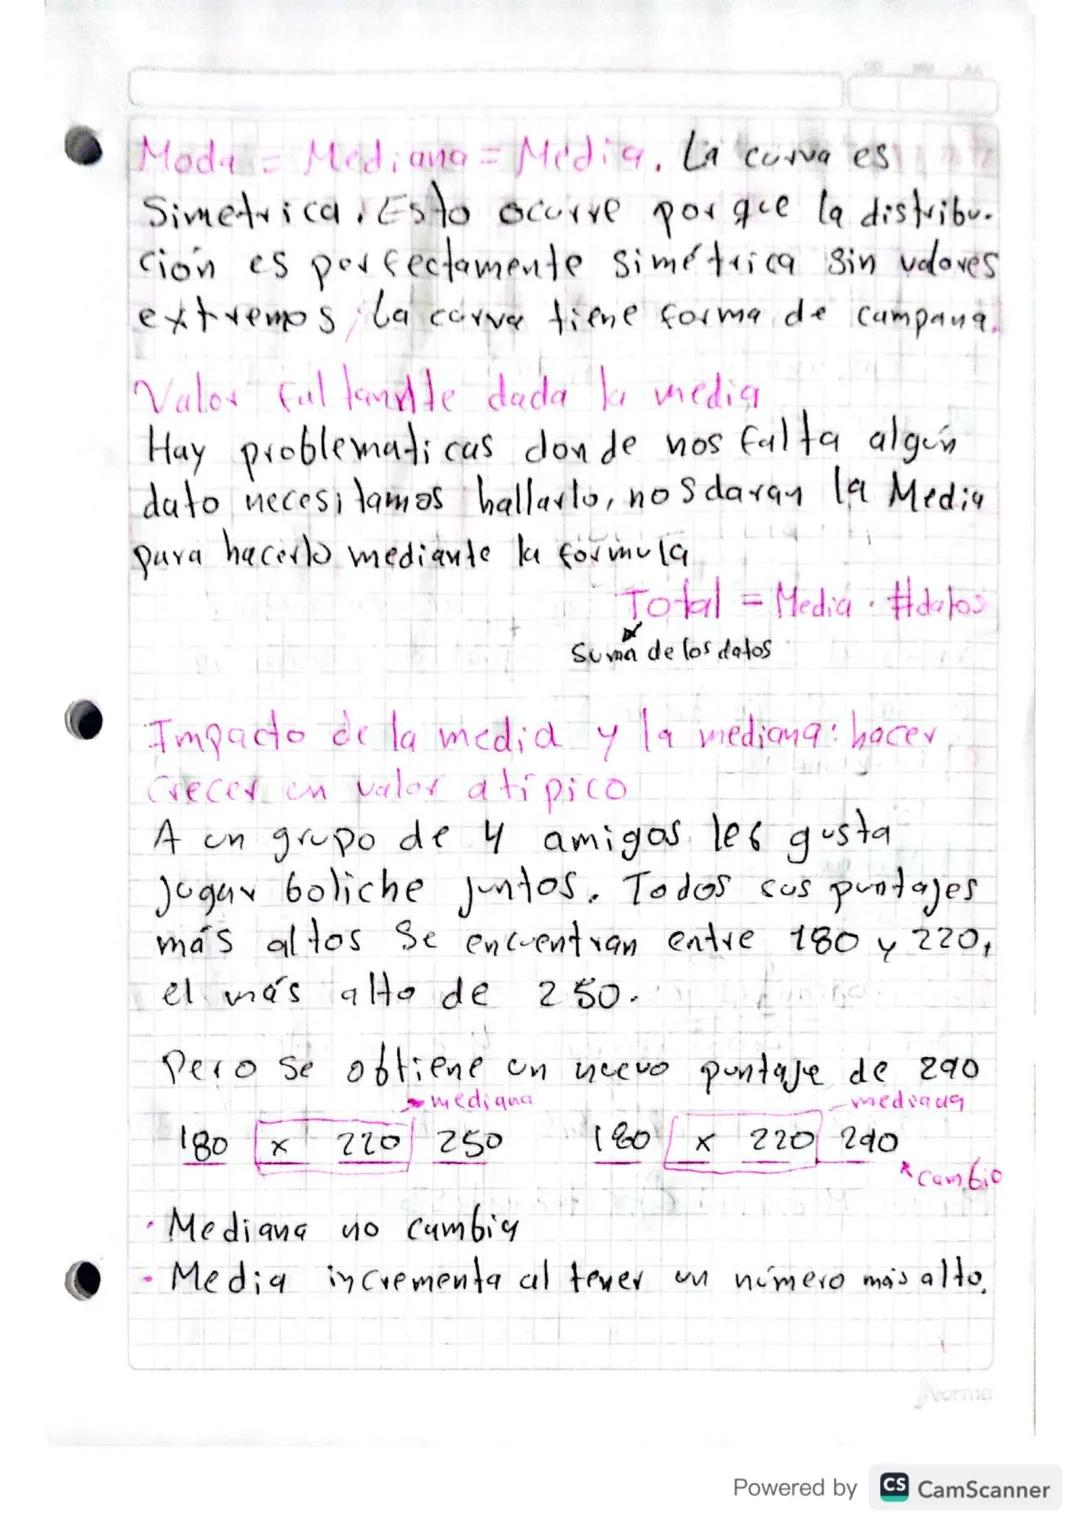 Moda = Mediana = Media. La curva es
Simetrica. Esto ocurre porque la distribu-
ción es perfectamente simétrica sin valores
extremos, La curva tiene forma de campana.
Valor faltante dada la media
Hay problematicas donde nos falta algún
dato necesitamos hallarlo, nos daran la Media
para hacerlo mediante la formula
Total = Media · #datos
Suma de los datos
Impacto de la media y la mediana: hacer
crecer un valor atípico
A un grupo de 4 amigos les gusta
jugar boliche juntos. Todos sus puntajes
más altos se encuentran entre 180 y 220,
el más alto de 250.
Pero se obtiene un nuevo puntaje de 290
mediana mediana
180 x 220 250 180 x 220 290
cambio
· Mediana no cambia
· Media incrementa al tener un número más alto.
Norma
Powered by CS CamScanner